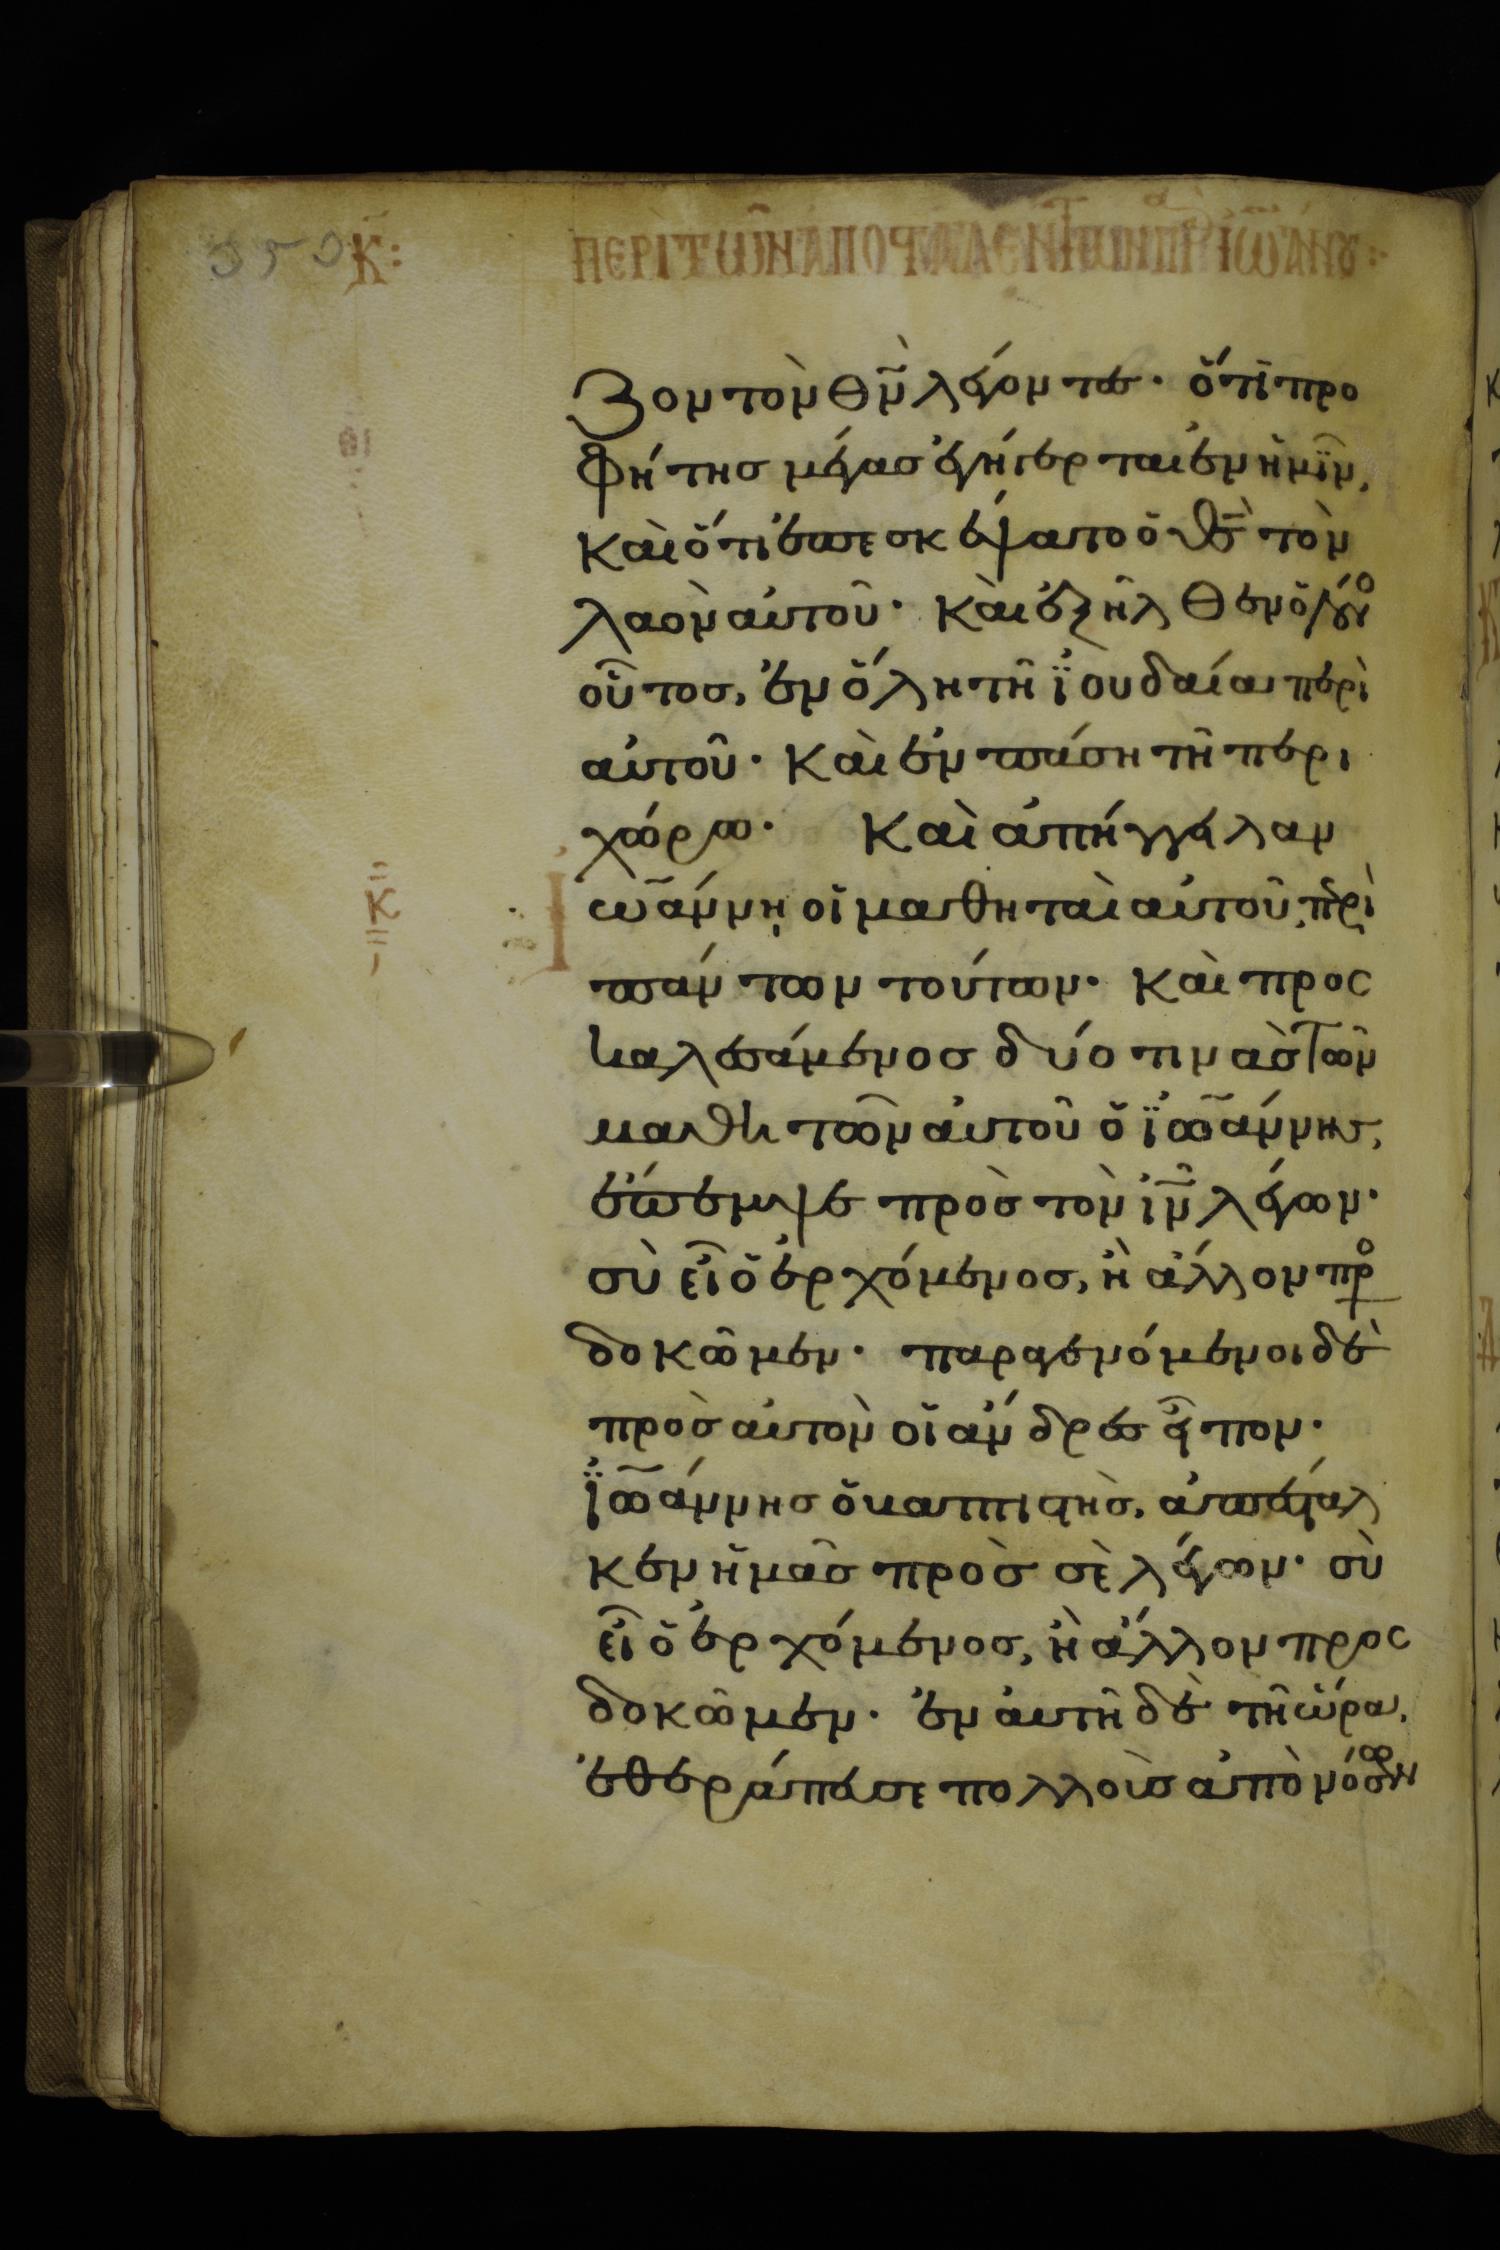 Κ:
ΠΕΡῚ ΤΩ͂Ν ἈΠΟϹΤΑΛΕΝΤΩΝ ΠΡ ἸΩΆΝΟΥ:
ζον τὸν θ̅ν̅ λέγοντες· ὅτι προ
φήτης μέγας ἐγήγερται ἐν ἡμῖν,
καὶ ὅτι ἐπεσκέψατο ὁ θ̅ς̅ τὸν
λαὸν αὐτοῦ· καὶ ἐξῆλθεν ὁ λόγο
οὗτος, ἐν ὅλη τῆ ϊουδαία περὶ
αὐτοῦ· καὶ ἐν πάση τῆ περι
χώρω· Καὶ ἀπήγγειλαν
Κ̅
Ἰωάννη οἱ μαθηταὶ αὐτοῦ, περὶ
πάντων τούτων· καὶ προς
καλεσάμενος δύο τινὰς τῶν
μαθητῶν αὐτοῦ ὁ ϊωάννης,
ἔπεμψε πρὸς τὸν ι̅ν̅ λέγων·
σὺ εἶ ὁ ἐρχόμενος, ἢ ἄλλον προ
δοκῶμεν· παραγενόμενοι δὲ
πρὸς αὐτὸν οἱ ἄνδρες εἶπον·
ϊωάννης ὁ βαπτιστὴς, ἀπέσταλ
κεν ἡμᾶς πρὸς σὲ λέγων· σὺ
εἶ ὁ ἐρχόμενος, ἢ ἄλλον προς
δοκῶμεν· ἐν αὐτῆ δὲ τῆ ὥρα,
ἐθεράπευσε πολλοὺς ἀπὸ νόσων